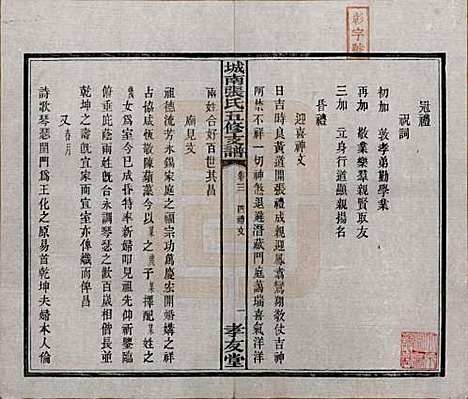 彰字號
冠禮
祝詞
初加　敦孝弟勤學業
再加　敬業樂羣親賢取友
三加　立身行道顯親揚名
昏禮
迎喜神文
日吉時良黃道開張禮成親迎鳳翥鸞翔敬仗吉神
呵禁不祥一切神煞退避潛藏門庭藹瑞喜氣洋洋
兩姓合好百世其昌
城南張氏五修支譜
卷三
四禮文
一
孝友堂
廟見文
祖德流芳永錫家庭之福宗功篤慶宏開婚媾之祥
占協咸恆敬陳蘋藻今以某之幾子某擇配某姓之
幾女爲室今成昏特率新婦叩見爰伸虔告祈鑒臨
俯垂庇蔭兩姓既訂台水之歡百歲相偕長享
乾坤之壽既宜家而宜室亦俾熾而俾昌
又
詩歌琴瑟閨門爲王化之原易首乾坤夫婦本人倫